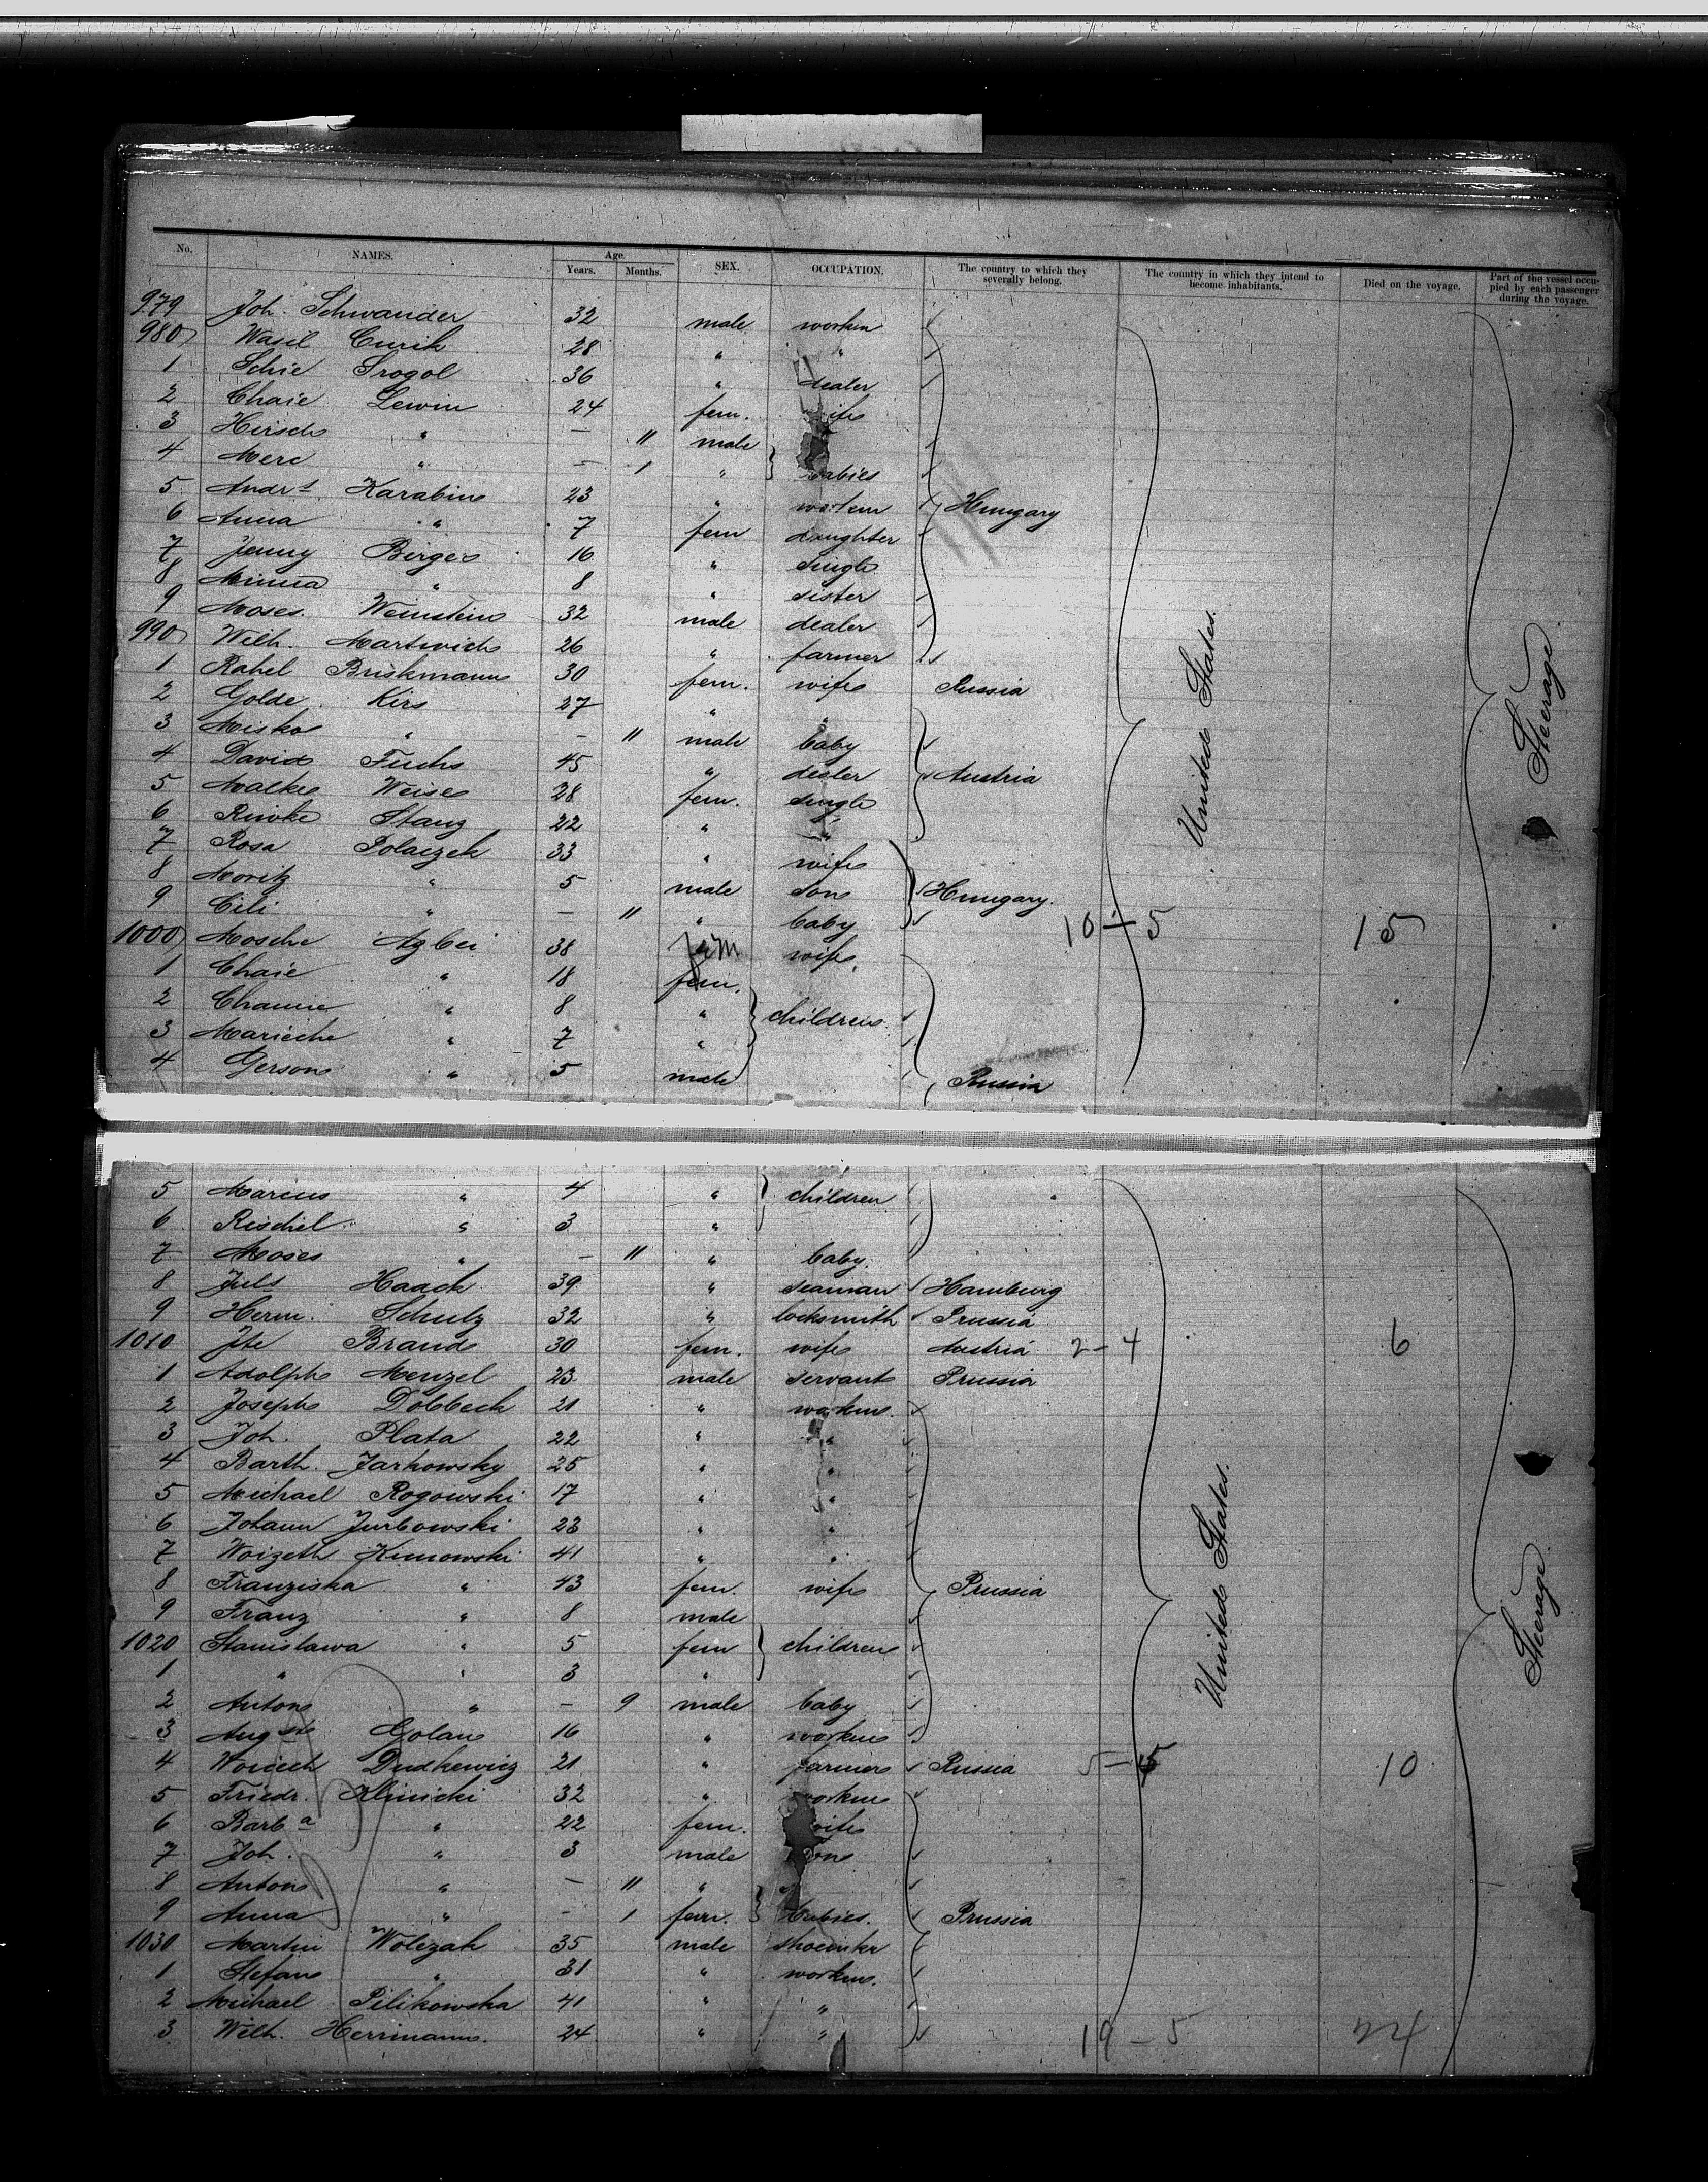 No. NAMES. Age. Years. Months. SEX. OCCUPATION. The country to which they severally belong. The country in which they intend to become inhabitants. Died on the voyage. Part of the vessel occupied by each passenger during the voyage.
979 Joh. Schwander 32 male worken
980 Wasil Curik 28 " "
1 Schie Srogol 36 " dealer
2 Chaie Lewin 24 fem. wife
3 Hirsch " — 11 male
4 Mere " — 1 " babies
5 Andrs Karabin 23 " workem Hungary
6 Anna " 7 fem daughter
7 Jenny Birger 16 " single
8 Minna " 8 " sister
9 Moses. Weinstein 32 male dealer
990 Wilh. Martwich 26 " farmer
1 Rahel Briskmann 30 fem. wife Russia
2 Golde Kirs 27 " "
3 Misko " — 11 male baby
4 David Fuchs 45 " dealer Austria
5 Malke Weise 28 fem. single
6 Riwke Stang 22 " "
7 Rosa Polaczek 33 " wife
8 Moritz " 5 male son Hungary.
9 Cili " — 11 " baby 10 — 5 15
1000 Mosche Azbei 38 fem wife
1 Chaie " 18 fem.
2 Channe " 8 " children
3 Marieche " 7 "
4 Gerson " 5 male Russia
United States.
Steerage
5 Marcus " 4 " children
6 Rischel " 3 "
7 Moses " — 11 " baby
8 Juls Haack 39 " seaman Hamburg
9 Herm. Schulz 32 " locksmith Prussia
1010 Jte Brand 30 fem. wife Austria 2 - 4 6
1 Adolph Menzel 23 male servant Prussia
2 Joseph Dobbeck 21 " workm.
3 Joh. Plata 22 " "
4 Barth. Jarkowsky 25 " "
5 Michael Rogowski 17 " "
6 Johann Jurbowski 23 " "
7 Woizeth Kimowski 41 " "
8 Franziska " 43 fem. wife Prussia
9 Franz " 8 male
1020 Stanislawa " 5 fem children
1 " " 3 "
2 Anton " — 9 male baby
3 Augste Golan 16 " workm
4 Woicech Dudkewicz 21 " farmer Russia 5 — 5 10
5 Friedr. Klinicki 32 " workm
6 Barba " 22 fem. wife
7 Joh. " 3 male son
8 Anton " — 11 "
9 Anna " — 1 fem. babies. Prussia
1030 Martin Wolczak 35 male shoemkr
1 Stefan " 31 " workm.
2 Michael Pilikowska 41 " "
3 Wilh. Herrmann. 24 " " 19 — 5 24
United States.
Steerage